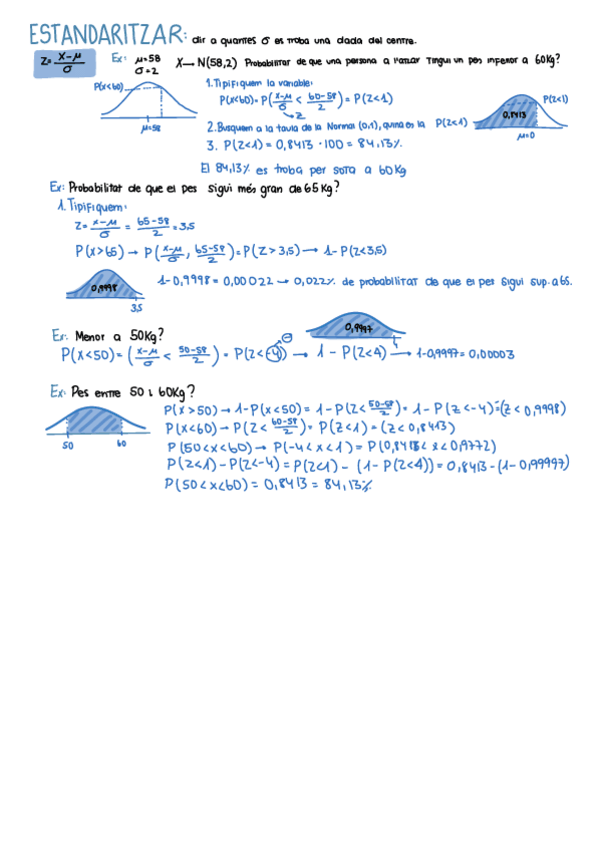 ESTANDARITZAR: dir a quantes σ es troba una dada del centre.
Z= x-μ/σ
Ex: μ=58
σ=2
X→N(58,2) Probabilitat de que una persona a l'atzar tingui un pes inferior a 60Kg?
P(x<60)
μ=58
1. Tipifiquem la variable:
P(x<60)= P(x-μ/σ < 60-58/2) = P(Z<1)
Z
2. Busquem a la taula de la Normal (0,1), quina és la P(Z<1)
3. P(Z<1) = 0,8413 · 100 = 84,13%
P(Z<1)
0,8413
μ=0
El 84,13% es troba per sota a 60Kg
Ex: Probabilitat de que el pes sigui més gran de 65Kg?
1. Tipifiquem:
Z= x-μ/σ = 65-58/2 = 3,5
P(x>65) → P(x-μ/σ, 65-58/2) = P(Z>3,5) → 1-P(Z<3,5)
0,9998
3,5
1-0,9998 = 0,00022 → 0,022% de probabilitat de que el pes sigui sup. a 65.
Ex: Menor a 50Kg?
P(x<50) = (x-μ/σ < 50-58/2) = P(Z<-4) → 1 - P(Z<4) → 1-0,9997= 0,00003
0,9997
4
Ex: Pes entre 50 i 60Kg?
50 60
P(x>50) → 1-P(x<50) = 1-P(Z< 50-58/2) = 1-P(Z<-4) = (Z<0,9998)
P(x<60) → P(Z< 60-58/2) = P(Z<1) = (Z<0,8413)
P(50<x<60) → P(-4<x<1) = P(0,8413<Z<0,9772)
P(Z<1) - P(Z<-4) = P(Z<1) - (1-P(Z<4)) = 0,8413 - (1-0,99997)
P(50<x<60) = 0,8413 = 84,13%